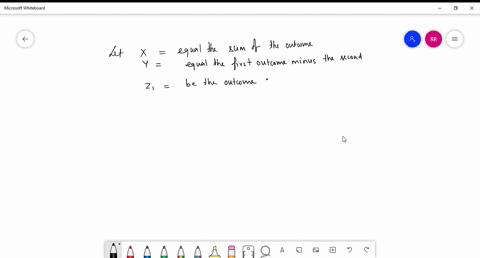 Microsoft Whiteboard
RR
Let X = equal the sum of the outcome
Y = equal the first outcome minus the second
Z1 = be the outcome